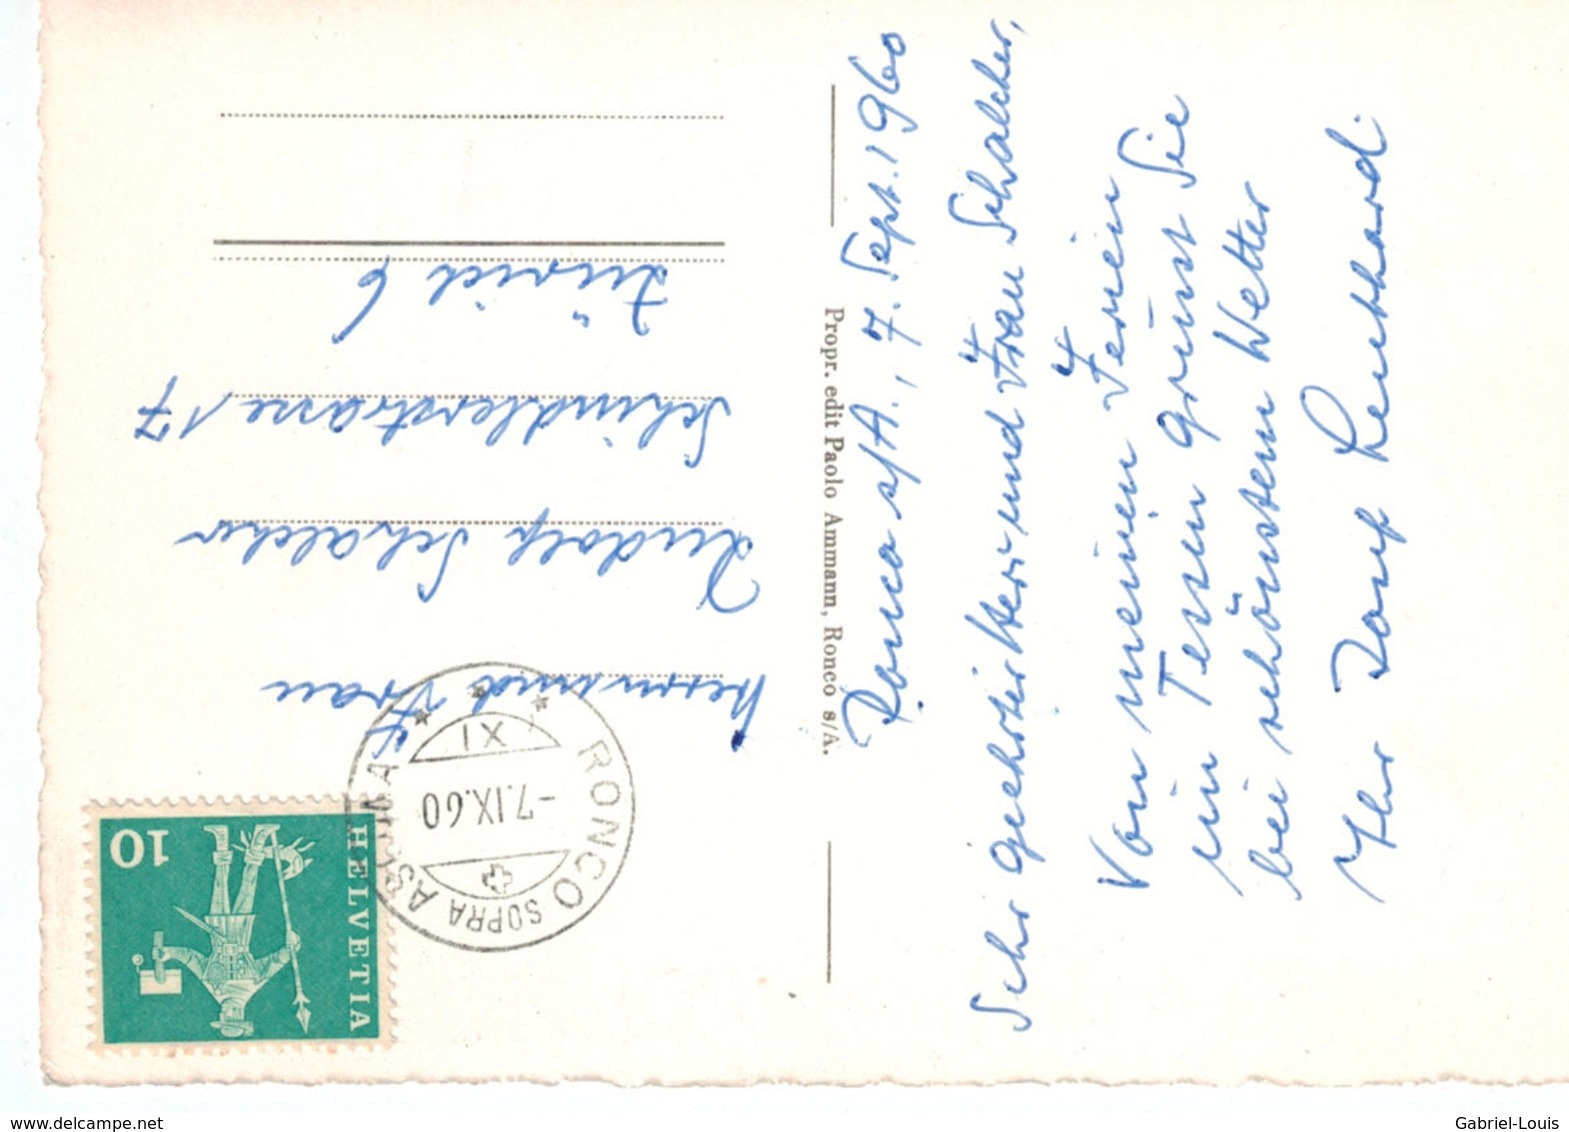 Ronco s/A., 7. Sept. 1960
Sehr geehrter Herr und Frau Schalcher,
Von meinen Ferien
im Tessin grüsst Sie
bei schönstem Wetter
Ihr Rolf Leuthard
Propr. edit Paolo Ammann, Ronco s/A.
HELVETIA
10
RONCO SOPRA ASCONA
-7.IX.60
XI
Herrn und Frau
Rudolf Schalcher
Schindlerstrasse 17
Zürich 6
www.delcampe.net
Gabriel-Louis